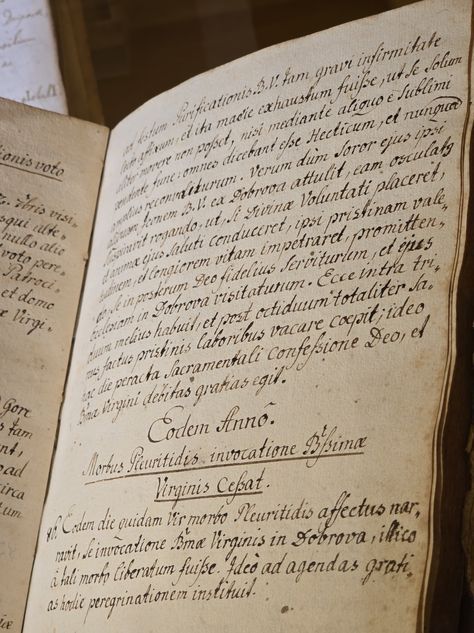 ionis voto
visi
squi alte
nullo alio
voto pere
Patroci
et domo
æ Virgi
Gore
s tam
nt,
oad
irca
tum
festum Purificationis B.V. tam gravi infirmitate
lecto affixum, et ita macie exhaustum fuisse, ut se solum
movere non posset, nisi mediante aliquo e Sublimi
tune: omnes dicebant esse Hecticum, et nunquam
Verum dum Soror ejus ipsi
B.V. ea Dobrova attulit, eam osculatq
rogando, ut, si Divinæ Voluntati placeret,
et animæ ejus Saluti conduceret, ipsi pristinam vale
tudinem, et longiorem vitam impetraret, promitten-
do, Se in posterum Deo fidelius Serviturum, et ejus
Ecclesiam in Dobrova visitaturum. Ecce intra tri
duum melius habuit, et post octiduum totaliter Sa
nus factus pristinis laboribus vacare cœpit; ideo
hac die peracta Sacramentali Confessione Deo, et
Bmæ Virgini debitas gratias egit.
Eodem Anno.
Morbus Pleuritidis invocatione Bssimæ
Virginis Cessat.
Eodem die quidam Vir morbo Pleuritidis affectus nar
ravit, Se invocatione Bmæ Virginis in Dobrova, illico
à tali morbo liberatum fuisse. Ideò ad agendas grati
as hodie peregrinationem instituit.